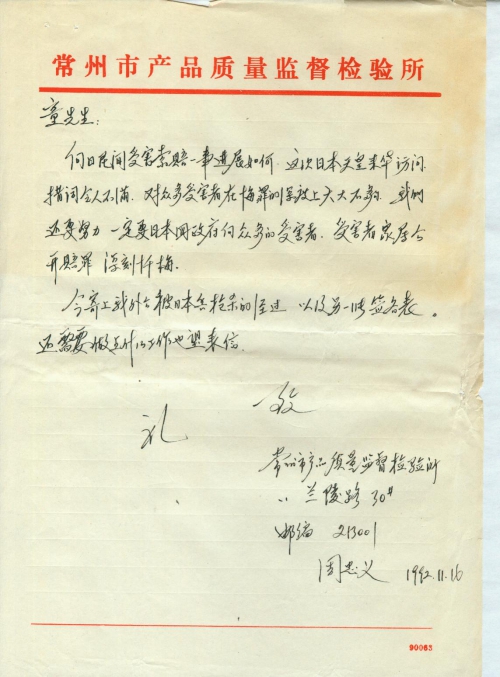 常州市产品质量监督检验所
童先生：
向日民间受害索赔一事进展如何，这次日本天皇来华访问
措词令人不满，对众多受害者在悔罪的深救上大大不够，我们
还要努力一定要日本国政府向众多的受害者、受害者家属公
开赔罪 深刻忏悔。
今寄上我外公被日本兵枪杀的经过 以及另一张签名表。
还需要做点什么工作也望来信
致
礼
常州市产品质量监督检验所
〃 兰陵路30#
邮编 213001
周忠义 1992.11.16
90063